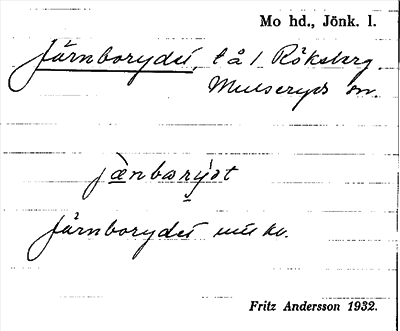 Mo hd., Jönk. l.
Järnborydet, t å 1 Röksberg.
Mulseryds sn.
jæ̀nbærýdt
Järnborydet utt kv.
Fritz Andersson 1932.